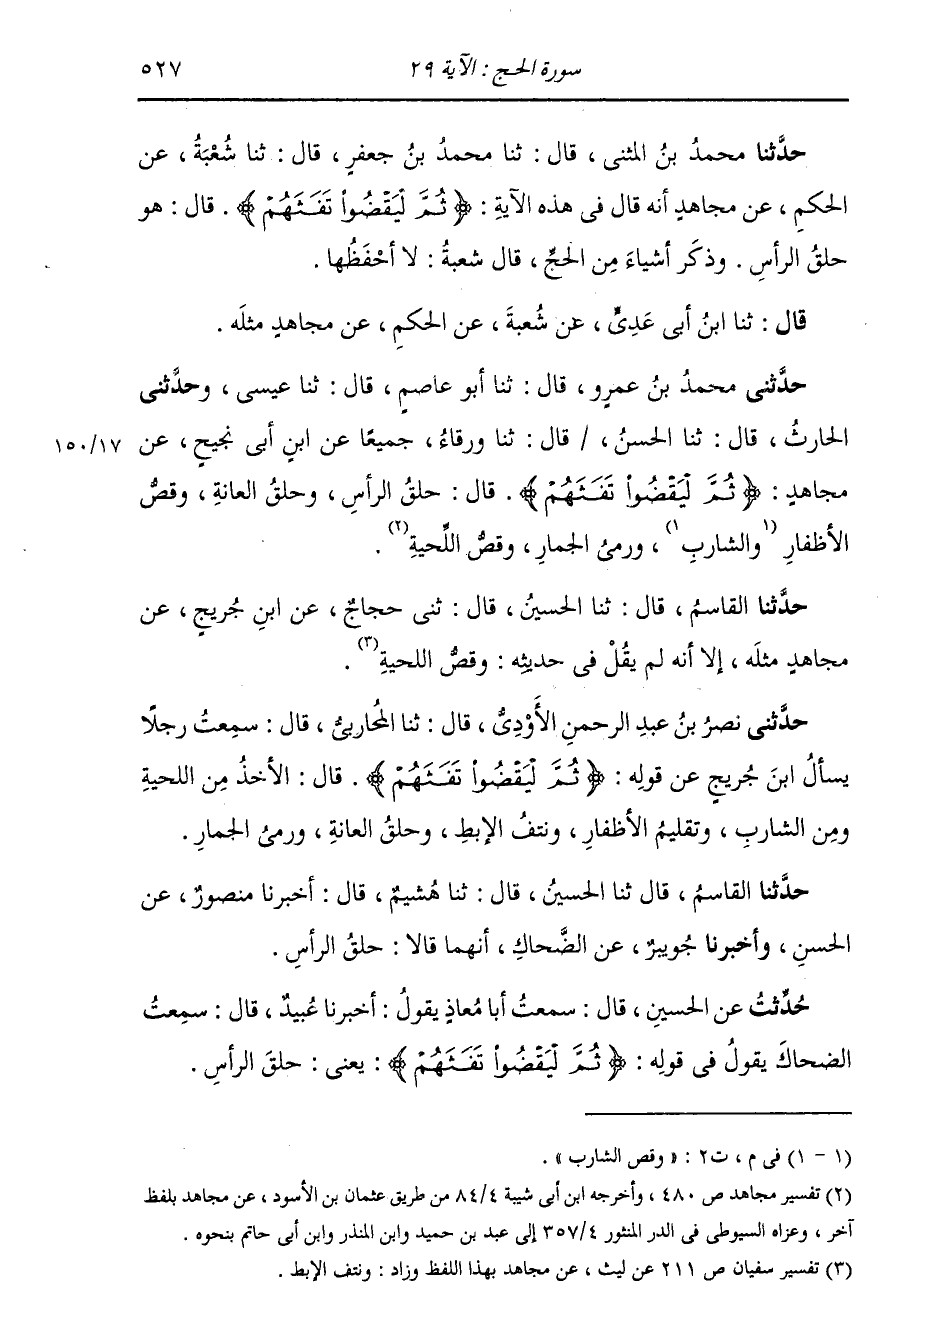 سورة الحج : الآية ٢٩ ٥٢٧
حدَّثنا محمدُ بنُ المثنى ، قال : ثنا محمدُ بنُ جعفرٍ ، قال : ثنا شُعْبَةُ ، عن
الحكمِ ، عن مجاهدٍ أنه قال فى هذه الآيةِ : ﴿ ثُمَّ لْيَقْضُوا۟ تَفَثَهُمْ ﴾ . قال : هو
حلقُ الرأسِ . وذكَر أشياءَ مِن الحجِّ ، قال شعبةُ : لا أحْفَظُها .
قال : ثنا ابنُ أبى عَدِىٍّ ، عن شُعبةَ ، عن الحكمِ ، عن مجاهدٍ مثلَه .
حدَّثنى محمدُ بنُ عمرٍو ، قال : ثنا أبو عاصمٍ ، قال : ثنا عيسى ، وحدَّثنى
الحارثُ ، قال : ثنا الحسنُ ، / قال : ثنا ورقاءُ ، جميعًا عن ابنِ أبى نجيحٍ ، عن ١٥٠/١٧
مجاهدٍ : ﴿ ثُمَّ لْيَقْضُوا۟ تَفَثَهُمْ ﴾ . قال : حلقُ الرأسِ ، وحلقُ العانةِ ، وقصُّ
الأظفارِ (١والشاربِ١) ، ورمىُ الجمارِ ، وقصُّ اللِّحيةِ(٢) .
حدَّثنا القاسمُ ، قال : ثنا الحسينُ ، قال : ثنى حجاجٌ ، عن ابنِ جُريجٍ ، عن
مجاهدٍ مثلَه ، إلا أنه لم يقُلْ فى حديثِه : وقصُّ اللحيةِ(٣) .
حدَّثنى نصرُ بنُ عبدِ الرحمنِ الأَوْدِىُّ ، قال : ثنا المُحاربىُّ ، قال : سمِعتُ رجلًا
يسألُ ابنَ جُريجٍ عن قولِه : ﴿ ثُمَّ لْيَقْضُوا۟ تَفَثَهُمْ ﴾ . قال : الأخذُ مِن اللحيةِ
ومِن الشاربِ ، وتقليمُ الأظفارِ ، ونتفُ الإبطِ ، وحلقُ العانةِ ، ورمىُ الجمارِ .
حدَّثنا القاسمُ ، قال ثنا الحسينُ ، قال : ثنا هُشيمٌ ، قال : أخبرنا منصورٌ ، عن
الحسنِ ، وأخبرنا جُويبرٌ ، عن الضَّحاكِ ، أنهما قالا : حلقُ الرأسِ .
حُدِّثتُ عن الحسينِ ، قال : سمعتُ أبا مُعاذٍ يقولُ : أخبرنا عُبيدٌ ، قال : سمِعتُ
الضحاكَ يقولُ فى قولِه : ﴿ ثُمَّ لْيَقْضُوا۟ تَفَثَهُمْ ﴾ : يعنى : حلقَ الرأسِ .
(١ - ١) فى م ، ت٢ : « وقص الشارب » .
(٢) تفسير مجاهد ص ٤٨٠ ، وأخرجه ابن أبى شيبة ٨٤/٤ من طريق عثمان بن الأسود ، عن مجاهد بلفظ
آخر ، وعزاه السيوطى فى الدر المنثور ٣٥٧/٤ إلى عبد بن حميد وابن المنذر وابن أبى حاتم بنحوه .
(٣) تفسير سفيان ص ٢١١ عن ليث ، عن مجاهد بهذا اللفظ وزاد : ونتف الإبط .